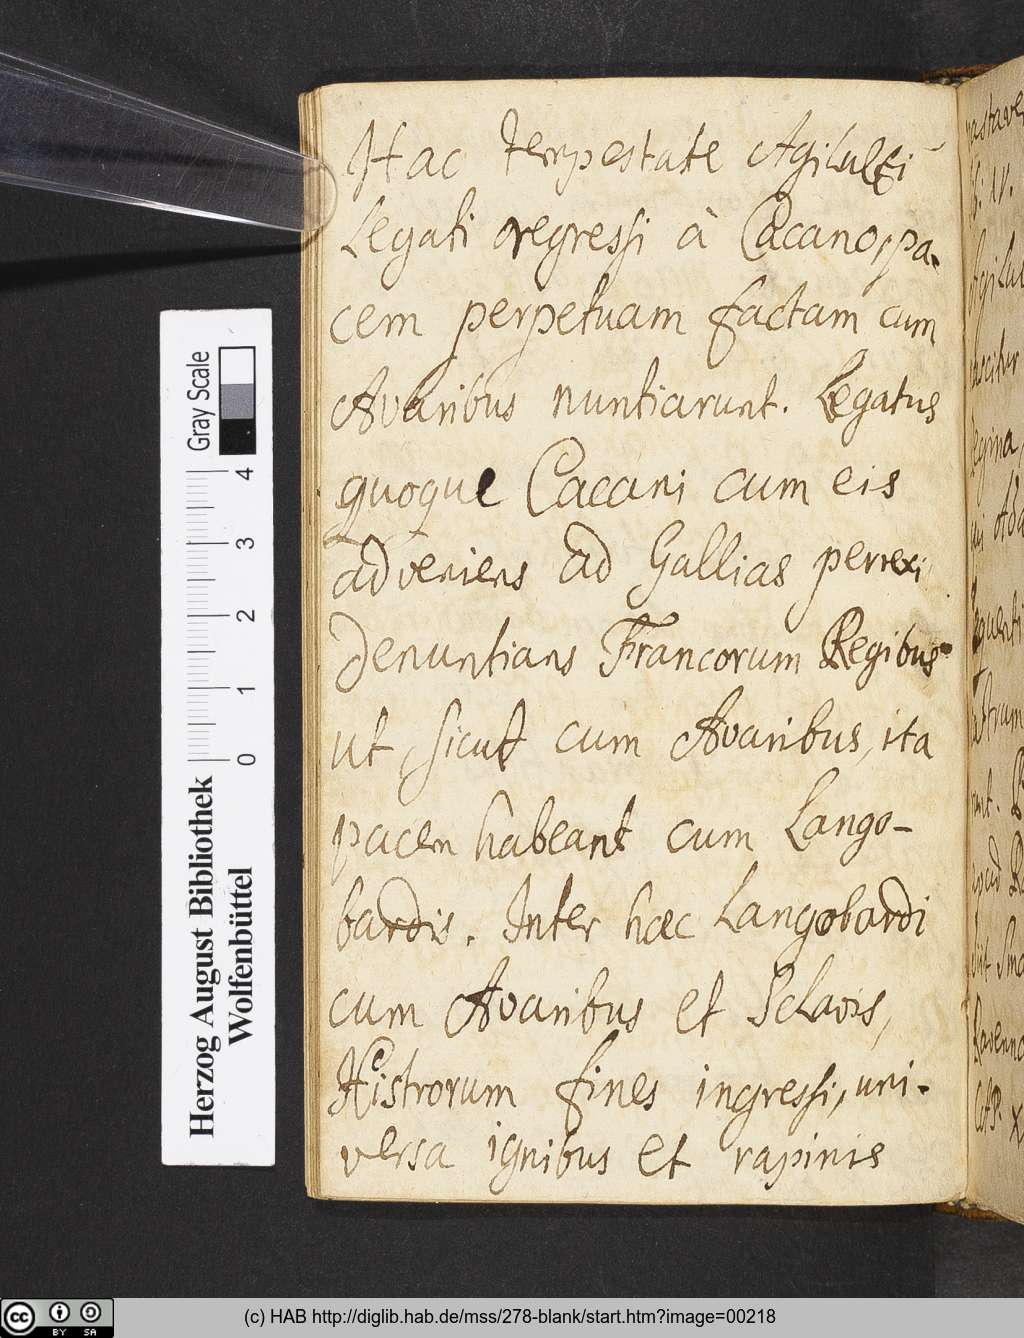 Hac tempestate Agilulfi
Legati regressi à Cacano, pa-
cem perpetuam factam cum
Avaribus nuntiarunt. Legatus
quoque Cacani cum eis
adveniens ad Gallias perrexi,
denuntians Francorum Regibus
ut, sicut cum Avaribus, ita
pacem habeant cum Lango-
bardis. Inter haec Langobardi
cum Avaribus et Sclavis,
Histrorum fines ingressi, uni-
versa ignibus et rapinis
Gray Scale
0 1 2 3 4
Herzog August Bibliothek
Wolfenbüttel
cc BY SA
(c) HAB http://diglib.hab.de/mss/278-blank/start.htm?image=00218